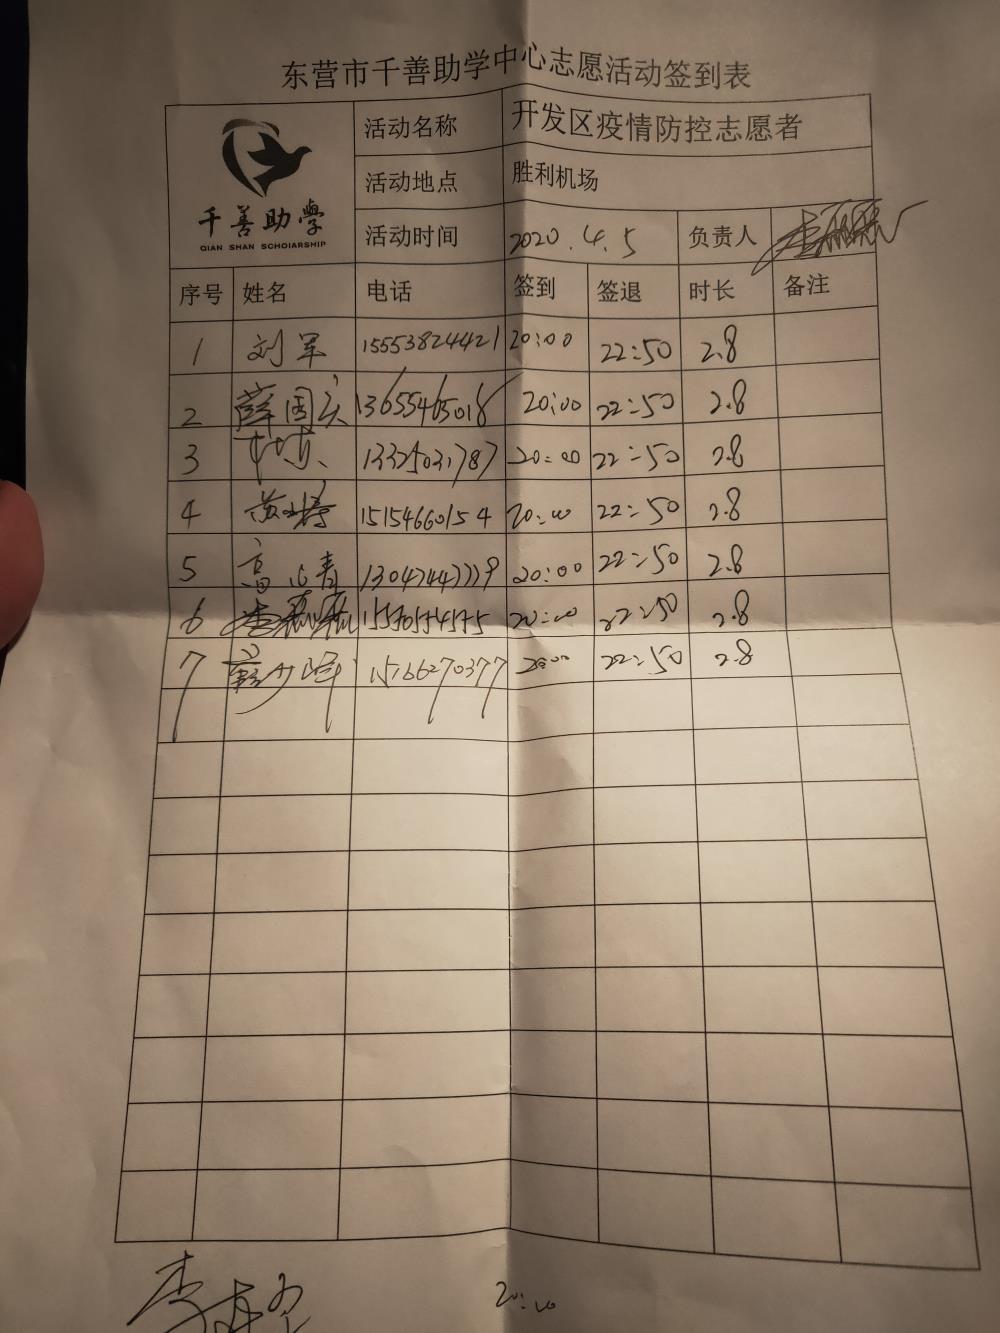 东营市千善助学中心志愿活动签到表
千善助學
QIAN SHAN SCHOIARSHIP
活动名称 开发区疫情防控志愿者
活动地点 胜利机场
活动时间 2020.4.5 负责人
序号 姓名 电话 签到 签退 时长 备注
1 刘军 15553824421 20:00 22:50 2.8
2 薛国庆 13655465018 20:00 22:50 2.8
3 13325031787 20:00 22:50 2.8
4 15154660154 20:00 22:50 2.8
5 高 20:00 22:50 2.8
6 20:00 22:50 2.8
7 15166270377 20:00 22:50 2.8
李 20:00